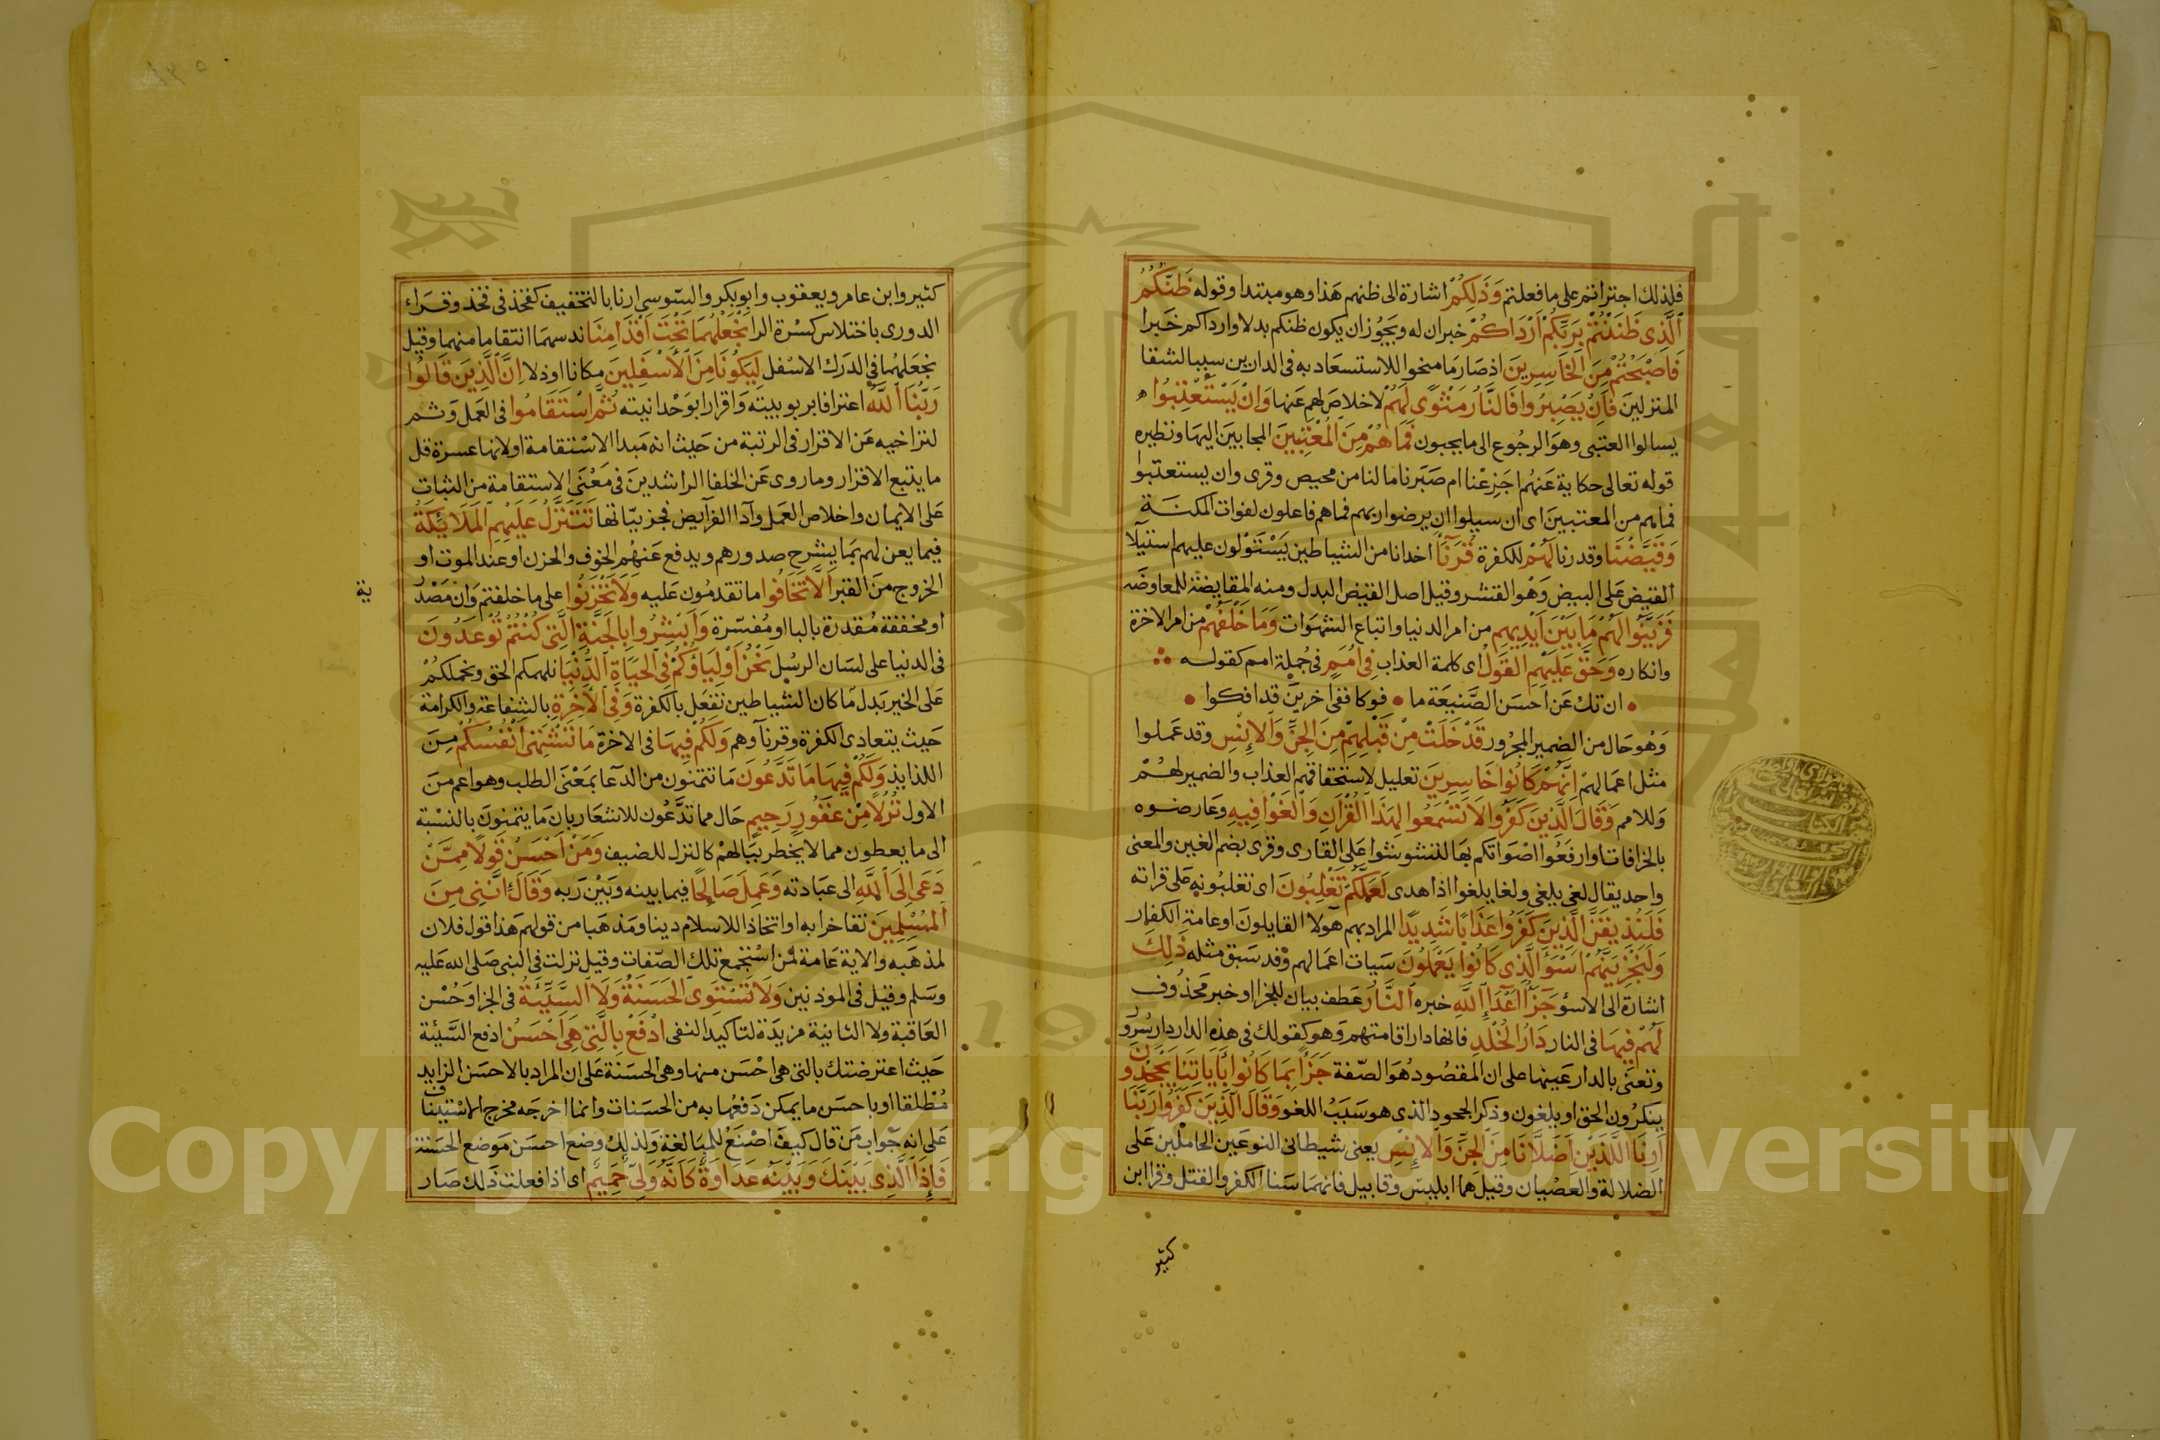 فلذلك اجترأتم على ما فعلتم وَذَلِكُمْ اشارة الى ظنهم هذا وهو مبتدا وقوله ظَنُّكُمُ
ٱلَّذِى ظَنَنْتُمْ بِرَبِّكُمْ أَرْدَاكُمْ خبران له ويجوز ان يكون ظنكم بدلا وارداكم خبرا
فَأَصْبَحْتُمْ مِنَ الْخَاسِرِينَ اذ صار ما منحوا للاستسعاد به فى الدارين سببا لشقا
المنزلين فَإِنْ يَصْبِرُوا فَالنَّارُ مَثْوًى لَهُمْ لا خلاص لهم عنها وَإِنْ يَسْتَعْتِبُوا
يسالوا العتبى وهو الرجوع الى ما يحبون فَمَا هُمْ مِنَ الْمُعْتَبِينَ المجابين اليها ونظيره
قوله تعالى حكاية عنهم اجزعنا ام صبرنا ما لنا من محيص وقرى وان يستعتبوا
فما هم من المعتبين اى ان سيلوا ان يرضوا ربهم فماهم فاعلون لفوات المكنة
وَقَيَّضْنَا وقدرنا لَهُمْ للكفرة قُرَنَآءَ اخدانا من الشياطين يستولون عليهم استيلآ
القيض على البيض وهو القشر وقيل اصل القيض البدل ومنه المقايضة للمعاوضة
فَزَيَّنُوا لَهُمْ مَا بَيْنَ أَيْدِيهِمْ من امر الدنيا واتباع الشهوات وَمَا خَلْفَهُمْ من امر الاخرة
وانكاره وَحَقَّ عَلَيْهِمُ الْقَوْلُ اى كلمة العذاب فِى أُمَمٍ فى جملة امم كقوله
ان تك عن احسن الصنيعة ما فوكا ففى اخرين قد افكوا
وهو حال من الضمير المجرور قَدْ خَلَتْ مِنْ قَبْلِهِمْ مِنَ الْجِنِّ وَالْإِنْسِ وقد عملوا
مثل اعمالهم إِنَّهُمْ كَانُوا خَاسِرِينَ تعليل لاستحقاقهم العذاب والضمير لهم
وللامم وَقَالَ الَّذِينَ كَفَرُوا لَا تَسْمَعُوا لِهَذَا الْقُرْآنِ وَالْغَوْا فِيهِ وعارضوه
بالخرافات او ارفعوا اصواتكم بها لتشوشوا على القارى وقرى بضم الغين والمعنى
واحد يقال لغى يلغى ولغا يلغوا اذا هدى لَعَلَّكُمْ تَغْلِبُونَ اى تغلبونه على قراته
فَلَنُذِيقَنَّ الَّذِينَ كَفَرُوا عَذَابًا شَدِيدًا المراد بهم هولا القايلون او عامة الكفار
وَلَنَجْزِيَنَّهُمْ أَسْوَأَ الَّذِى كَانُوا يَعْمَلُونَ سيات اعمالهم وقد سبق مثله ذَلِكَ
اشارة الى الاسوء جَزَآءُ أَعْدَآءِ اللَّهِ خبره النَّارُ عطف بيان للجزا او خبر محذوف
لَهُمْ فِيهَا فى النار دَارُ الْخُلْدِ فانها دار اقامتهم وهو كقولك فى هذه الدار دار سرور
وتعنى بالدار عينها على ان المقصود هو الصفة جَزَآءً بِمَا كَانُوا بِآيَاتِنَا يَجْحَدُونَ
ينكرون الحق او يلغون وذكر الجحود الذى هو سبب اللغو وَقَالَ الَّذِينَ كَفَرُوا رَبَّنَا
أَرِنَا اللَّذَيْنِ أَضَلَّانَا مِنَ الْجِنِّ وَالْإِنْسِ يعنى شيطانى النوعين الحاملين على
الضلالة والعصيان وقيل هما ابليس وقابيل فانهما سنا الكفر والقتل وقرا ابن
كثير
كثير وابن عامر ويعقوب وابوبكر والسوسى ارنا بالتخفيف كفخذ فى فخذ وقراء
الدورى باختلاس كسرة الرا نَجْعَلْهُمَا تَحْتَ أَقْدَامِنَا ندسهما انتقاما منهما وقيل
نجعلهما فى الدرك الاسفل لِيَكُونَا مِنَ الْأَسْفَلِينَ مكانا او ذلا إِنَّ الَّذِينَ قَالُوا
رَبُّنَا اللَّهُ اعترافا بربوبيته واقرارا بوحدانيته ثُمَّ اسْتَقَامُوا فى العمل وثم
لتراخيه عن الاقرار فى الرتبة من حيث انه مبدا الاستقامة او لانها عسرة قل
ما يتبع الاقرار وما روى عن الخلفا الراشدين فى معنى الاستقامة من الثبات
على الايمان واخلاص العمل وآدا الفرآيض فجزييّاتها تَتَنَزَّلُ عَلَيْهِمُ الْمَلَائِكَةُ
فيما يعن لهم بما يشرح صدورهم ويدفع عنهم الخوف والحزن او عند الموت او
الخروج من القبر أَلَّا تَخَافُوا ما تقدمون عليه وَلَا تَحْزَنُوا على ما خلفتم وان مصدر
ية
او مخففة مقدرة بالبا او مفسرة وَأَبْشِرُوا بِالْجَنَّةِ الَّتِى كُنْتُمْ تُوعَدُونَ
فى الدنيا على لسان الرسل نَحْنُ أَوْلِيَاؤُكُمْ فِى الْحَيَاةِ الدُّنْيَا نلهمكم الحق ونحملكم
على الخير بدل ما كان الشياطين تفعل بالكفرة وَفِى الْآخِرَةِ بالشفاعة والكرامة
حيث يتعادى الكفرة وقرنآوهم وَلَكُمْ فِيهَا فى الاخرة مَا تَشْتَهِى أَنْفُسُكُمْ من
اللذايذ وَلَكُمْ فِيهَا مَا تَدَّعُونَ ما تتمنون من الدعا بمعنى الطلب وهو اعم من
الاول نُزُلًا مِنْ غَفُورٍ رَحِيمٍ حال مما تدعون للاشعار بان ما يتمنون بالنسبة
الى ما يعطون مما لا يخطر ببالهم كالنزل للضيف وَمَنْ أَحْسَنُ قَوْلًا مِمَّنْ
دَعَى إِلَى اللَّهِ الى عبادته وَعَمِلَ صَالِحًا فيما بينه وبين ربه وَقَالَ إِنَّنِى مِنَ
الْمُسْلِمِينَ تفاخرا به او اتخاذا للاسلام دينا ومذهبا من قولهم هذا قول فلان
لمذهبه والاية عامة لمن استجمع تلك الصفات وقيل نزلت فى النبى صلى الله عليه
وسلم وقيل فى الموذنين وَلَا تَسْتَوِى الْحَسَنَةُ وَلَا السَّيِّئَةُ فى الجزا وحسن
العاقبة ولا الثانية مزيدة لتاكيد النفى ادْفَعْ بِالَّتِى هِىَ أَحْسَنُ ادفع السيئة
حيث اعترضتك بالتى هى احسن منها وهى الحسنة على ان المراد بالاحسن الزايد
مطلقا او باحسن ما يمكن دفعها به من الحسنات وانما اخرجه مخرج الاستيناف
على انه جواب من قال كيف اصنع للمبالغة ولذلك وضع احسن موضع الحسنة
فَإِذَا الَّذِى بَيْنَكَ وَبَيْنَهُ عَدَاوَةٌ كَأَنَّهُ وَلِىٌّ حَمِيمٌ اى اذا فعلت ذلك صار